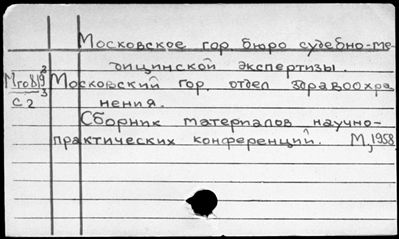 Московское гор. бюро судебно-ме-
дицинской экспертизы.
Московский гор. отдел здравоохра
нения.
С2
Сборник материалов научно-
практических конференций. М, 1958